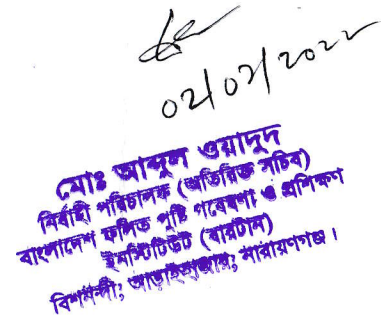 ০২/০২/২০২২
মোঃ আব্দুল ওয়াদুদ
নির্বাহী পরিচালক (অতিরিক্ত সচিব)
বাংলাদেশ ফলিত পুষ্টি গবেষণা ও প্রশিক্ষণ
ইনস্টিটিউট (বারটান)
বিশনন্দী; আড়াইহাজার; নারায়ণগঞ্জ।